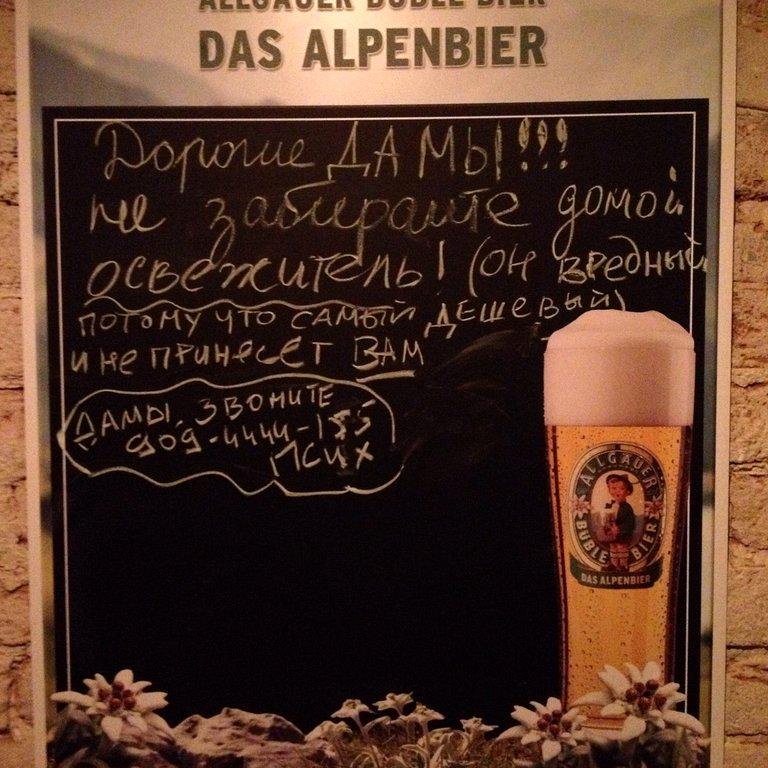 ALLGÄUER BÜBLE BIER
DAS ALPENBIER
Дорогие ДАМЫ!!!
не забираите домой
освежитель! (он вредный
потому что самый дешевый)
и не принесет ВАМ
ДАМЫ, ЗВОНИТЕ
909-4444-155
ПСИХ
ALLGÄUER
BÜBLE BIER
DAS ALPENBIER